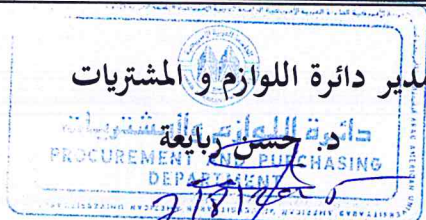 مدير دائرة اللوازم و المشتريات
د. حسن ربايعة
دائرة اللوازم والمشتريات
PROCUREMENT AND PURCHASING
DEPARTMENT